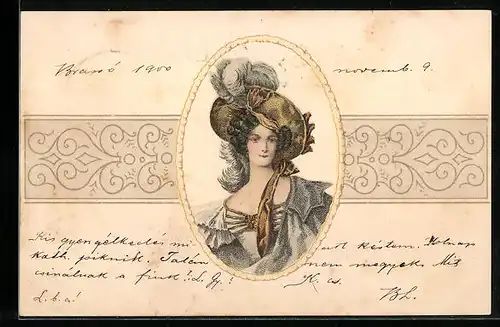 Brassó 1900 novemb. 9.
Kis gyengélkedés mi att késtem. Holnap
kath. piknik. Talán nem megyek. Mit
csinálnak a fiúk? L. Gy.? K. cs.
L. b. a! BL.